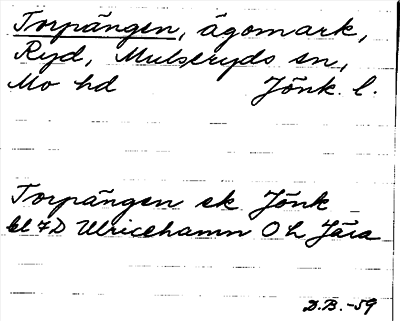 Torpängen, ägomark,
Ryd, Mulseryds sn,
Mo hd Jönk. l.
Torpängen ek Jönk
bl 7D Ulricehamn O h Jära
D.B. -59